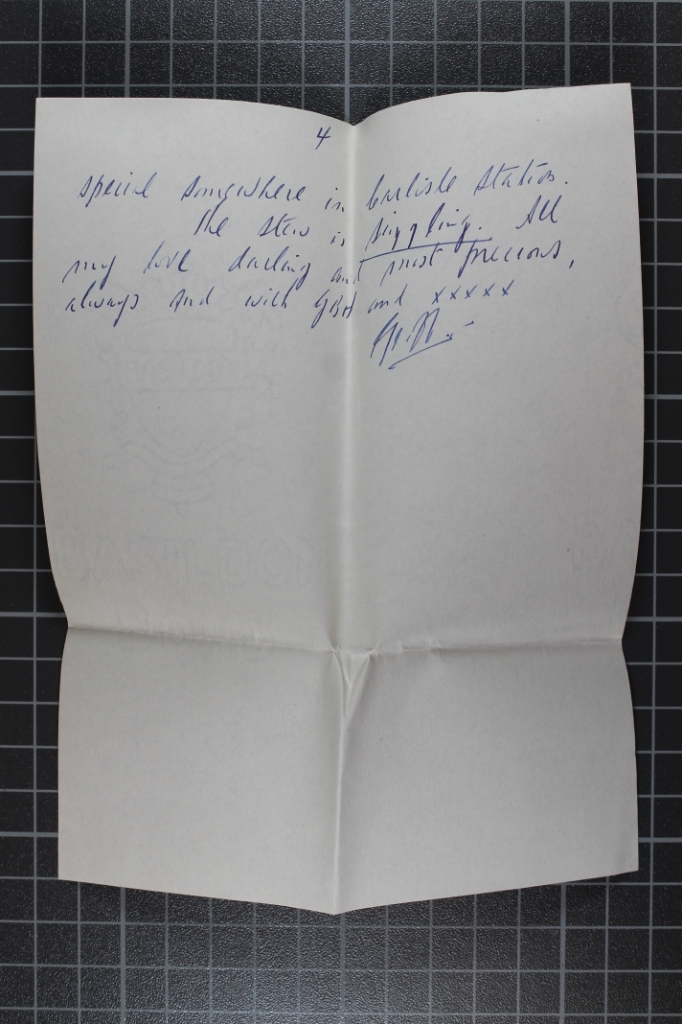 4
special somewhere in Carlisle Station.
The stew is sizzling. All
my love darling and most precious,
always and with and xxxxx